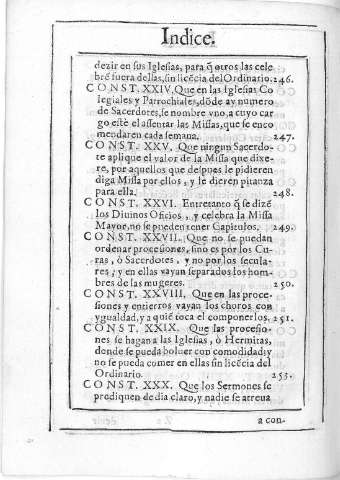 Indice.
dezir en sus Iglesias, para q̃ otros las cele
brẽ fuera dellas, sin licẽcia del Ordinario. 246.
CONST. XXIV. Que en las Iglesias Co
legiales y Parrochiales, dõde ay numero
de Sacerdotes, se nombre vno, a cuyo car
go estè el assentar las Missas, que se enco
mendaren cada semana. 247.
CONST. XXV. Que ningun Sacerdo-
te aplique el valor de la Missa que dixe-
re, por aquellos que despues le pidieren
diga Missa por ellos, y le dieren pitanza
para ella. 248.
CONST. XXVI. Entretanto q̃ se dizẽ
los Diuinos Oficios, y celebra la Missa
Mayor, no se pueden tener Capitulos. 249.
CONST. XXVII. Que no se puedan
ordenar procesiones, sino es por los Cu-
ras, ò Sacerdotes, y no por los secula-
res, y en ellas vayan separados los hom-
bres de las mugeres. 250.
CONST. XXVIII. Que en las proce-
siones y entierros vayan los choros con
ygualdad, y a quiẽ toca el componerlos. 251.
CONST. XXIX. Que las procesio-
nes se hagan a las Iglesias, ò Hermitas,
donde se pueda boluer con comodidad; y
no se pueda comer en ellas sin licẽcia del
Ordinario. 253.
CONST. XXX. Que los Sermones se
prediquen de dia claro, y nadie se atreua
a con-